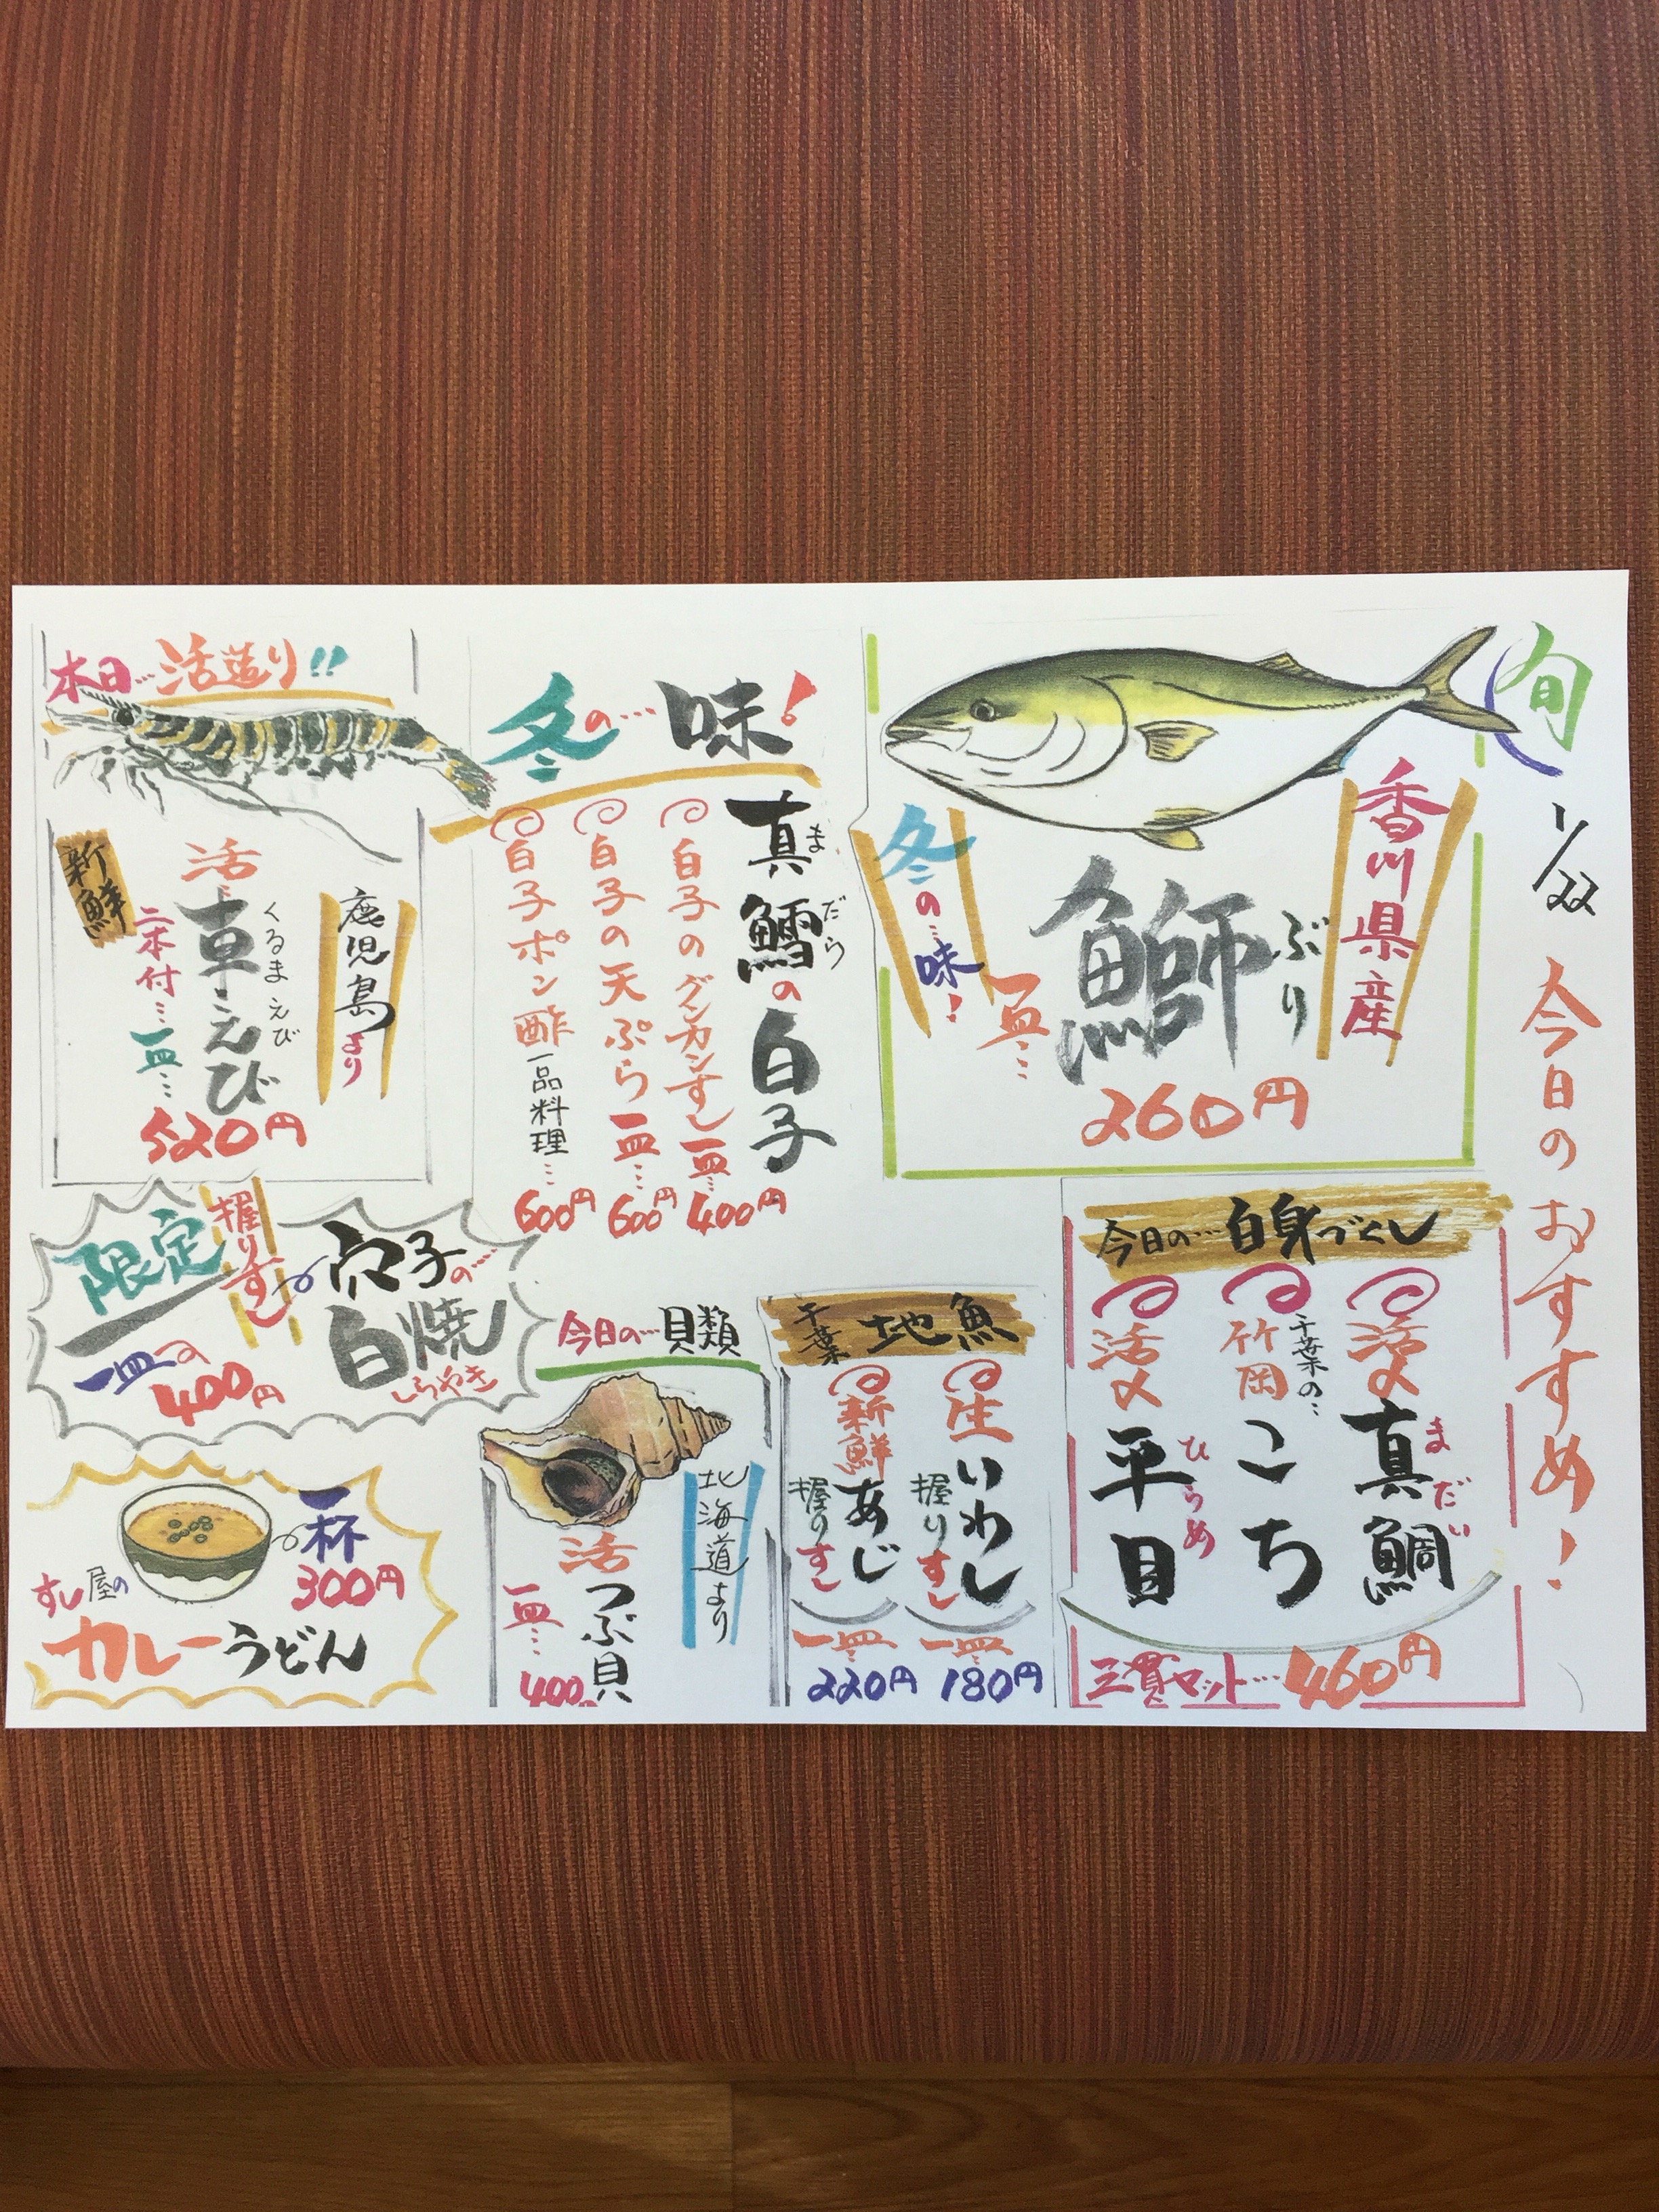 旬
1/22 今日のおすすめ!
香川県産
ぶり
鰤
一皿…
260円
冬の…味!
冬の…味!
真鱈の白子
まだら
白子のグンカンすし一皿…400円
白子の天ぷら一皿…600円
白子ポン酢一品料理…600円
本日…活造り!!
鹿児島より
くるまえび
活車えび
新鮮
二本付…一皿…
520円
今日の…白身づくし
活〆真鯛
まだい
千葉の…
竹岡こち
活〆平目
ひらめ
三貫セット…460円
千葉地魚
生いわし
握りすし
一皿…
180円
新鮮あじ
握りすし
一皿…
220円
今日の…貝類
北海道より
活つぶ貝
一皿…
400
限定握りすし
穴子の…
白焼
しらやき
一皿の
400円
一杯
300円
すし屋の
カレーうどん